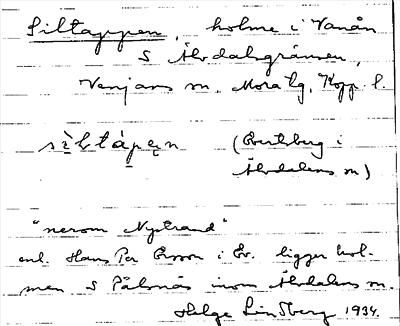 Siltappen, holme i Vanån
S Älvdalsgränsen,
Venjans sn. Mora tg, Kopp. l.
sìltápen (Evertsberg i
Älvdalens sn)
"nerom Nystrand"
enl. Hans Per Ersson i Ev. ligger hol-
men S Påhlsnäs inom Älvdalens sn.
Helge Lindberg 1934.